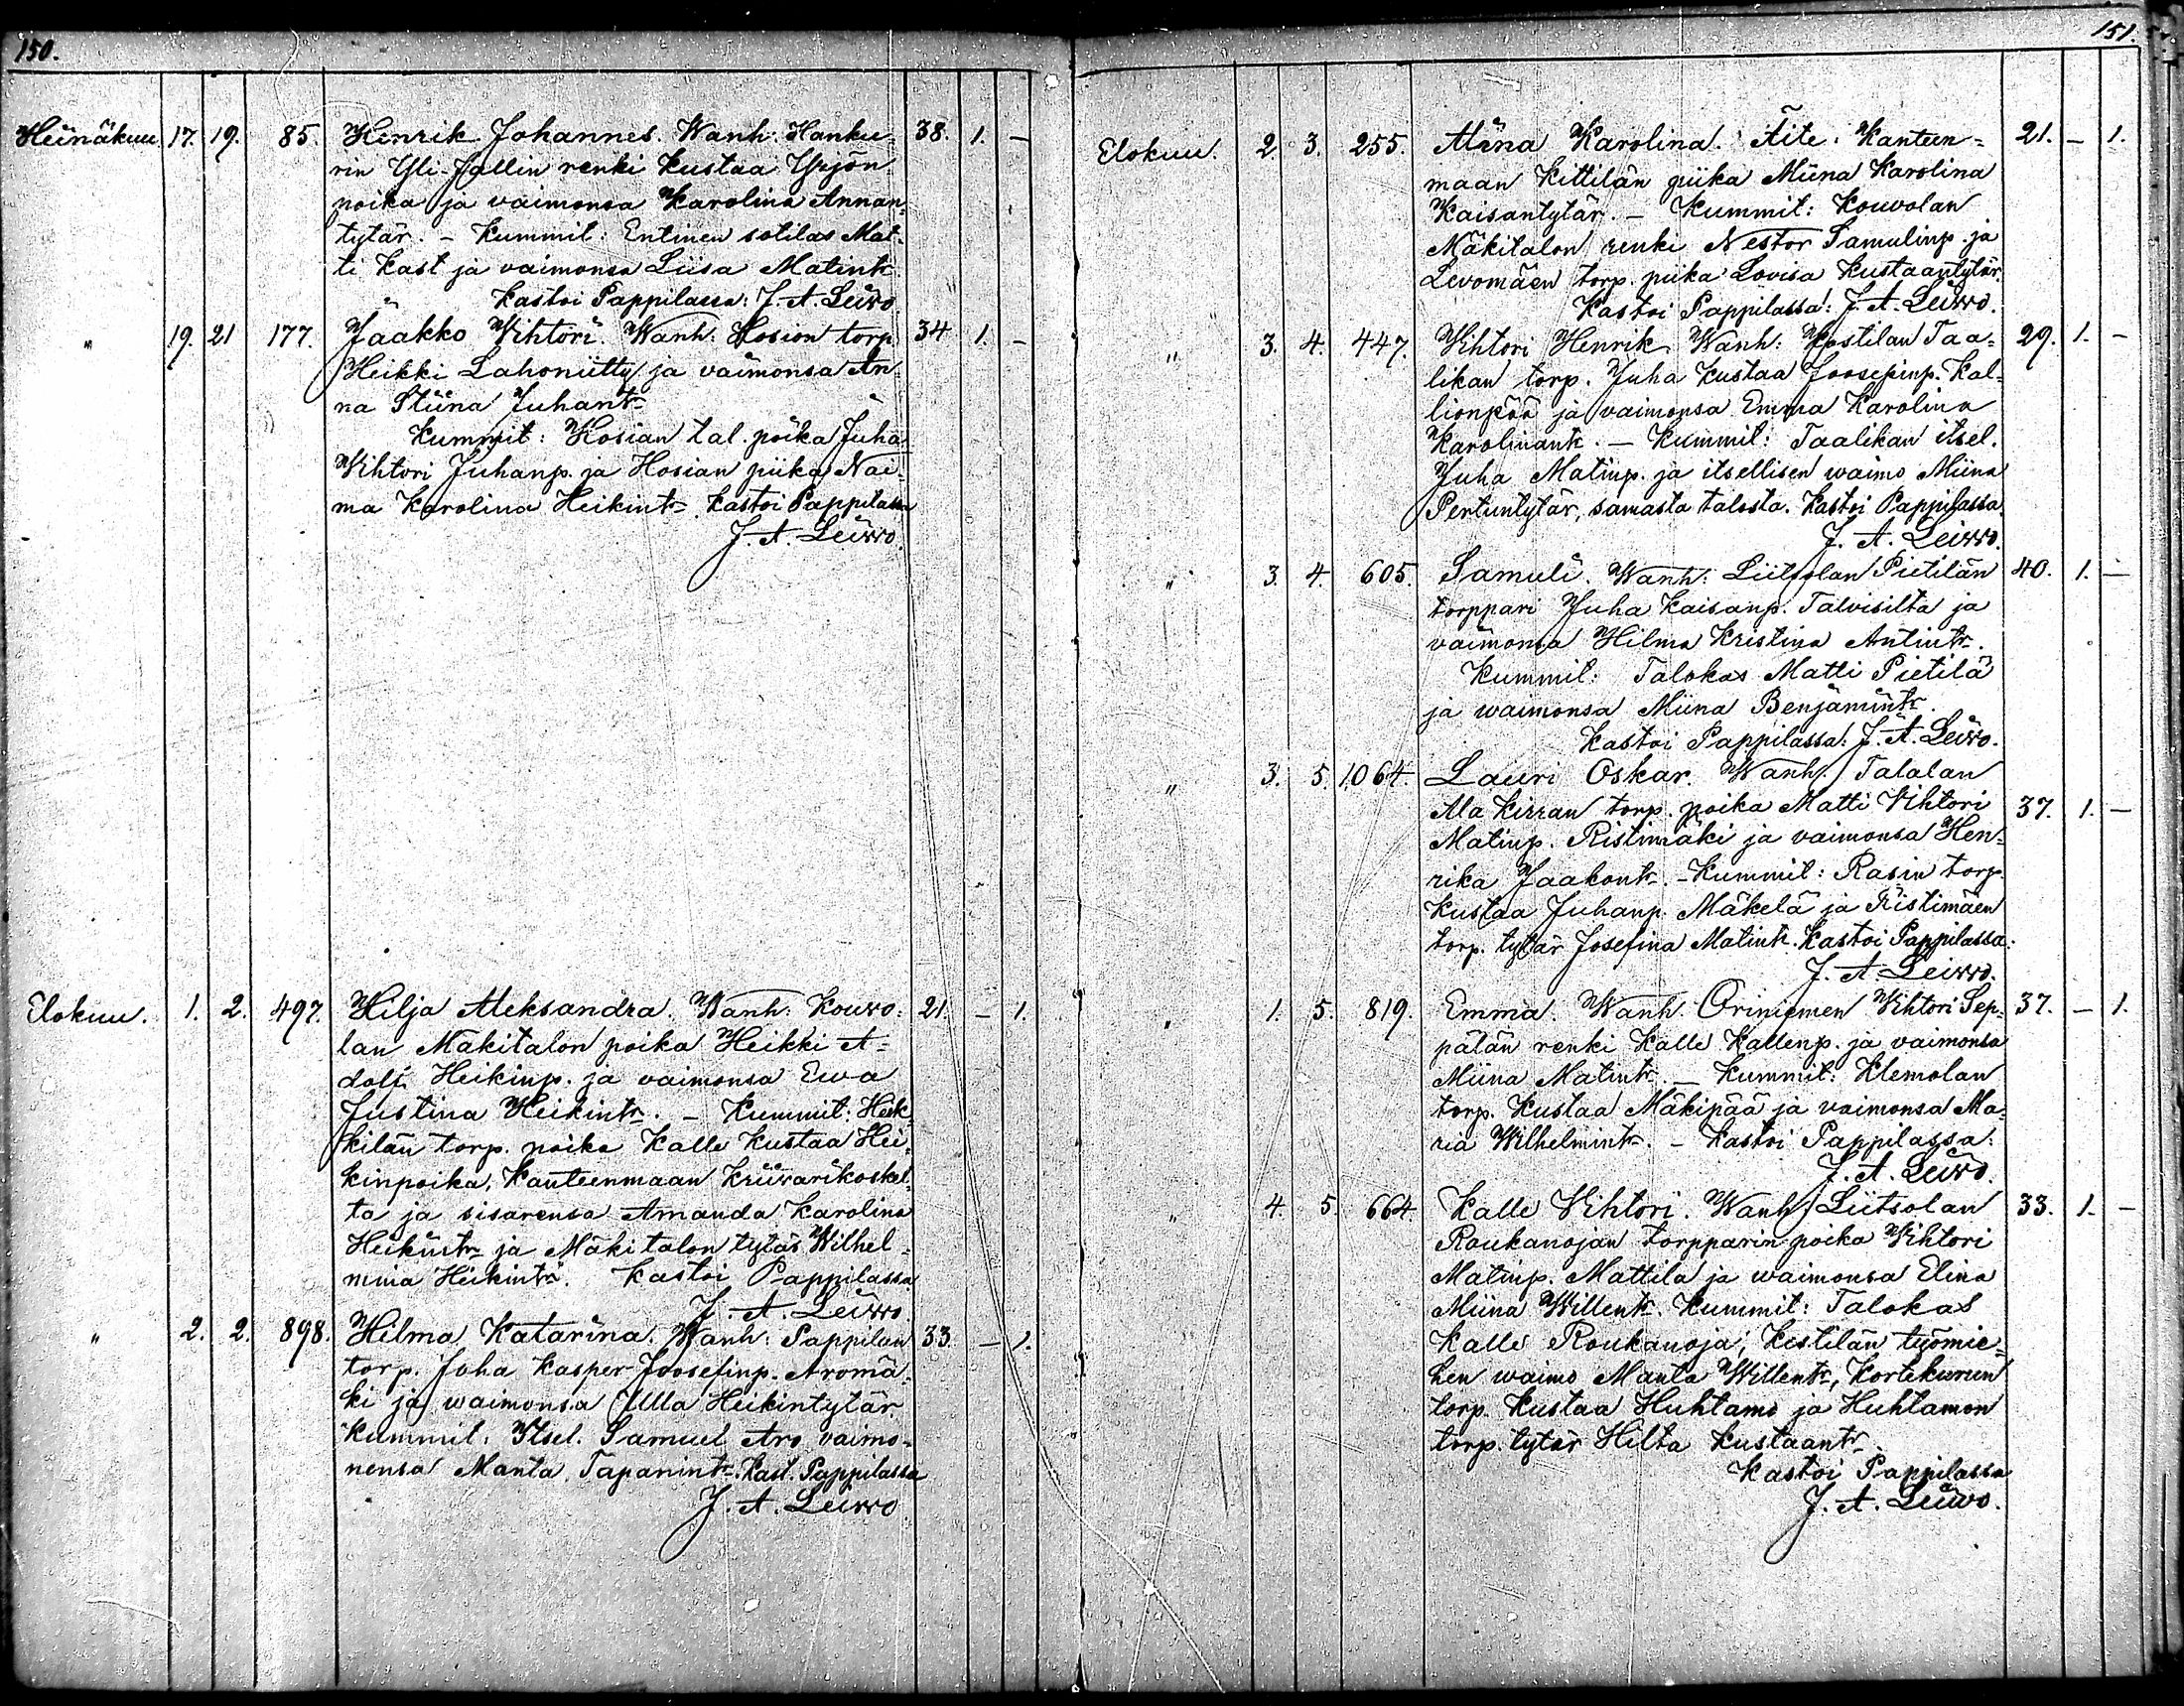 150.
Heinäkuu 17. 19. 85. Henrik Johannes. Wanh: Hanku- 38. 1. —
rin Yli-Jallin renki Kustaa Yrjön-
poika ja vaimonsa Karolina Annan-
tytär. — Kummit: Entinen sotilas Mat-
ti Kast ja vaimonsa Liisa Matintr
Kastoi Pappilassa: J. A. Leivo.
" 19. 21 177. Jaakko Wihtori. Wanh: Hosion torp. 34 1. —
Heikki Lahoniitty ja vaimonsa An-
na Stiina Juhantr
Kummit: Hosian tal. poika Juha
Wihtori Juhanp. ja Hosian piika Nai-
ma Karolina Heikintr. Kastoi Pappilassa
J. A. Leivo.
Elokuu. 1. 2. 497. Hilja Aleksandra. Wanh: Kouvo- 21. — 1.
lan Mäkitalon poika Heikki A-
dolf Heikinp. ja vaimonsa Ewa
Justina Heikintr. — Kummit: Heik-
kilän torp. poika Kalle Kustaa Hei-
kinpoika, Kanteenmaan Kriivarikoskel-
ta ja sisarensa Amanda Karolina
Heikintr ja Mäkitalon tytär Wilhel-
mina Heikintr. Kastoi Pappilassa
J. A. Leivo.
" 2. 2. 898. Hilma Katarina. Wanh: Pappilan 33. — 1.
torp. Juha Kasper Joosefinp. Aromä-
ki ja waimonsa Ulla Heikintytär.
Kummit: Itsel. Samuel Aro vaimo-
nensa Manta Tapanintr. Kast. Pappilassa
J. A. Leivo
151.
Elokuu. 2. 3. 255. Miina Karolina. Äite: Kanteen- 21. — 1.
maan Kittilän piika Miina Karolina
Kaisantytär. — Kummit: Kouvolan
Mäkitalon renki Nestor Samulinp. ja
Levomäen torp. piika Lovisa Kustaantytär.
Kastoi Pappilassa: J. A. Leivo.
" 3. 4. 447. Vihtori Henrik. Wanh: Kostilan Taa- 29. 1. —
likan torp. Juha Kustaa Joosepinp. Kal-
lionpää ja vaimonsa Emma Karolina
Karolinantr. — Kummit: Taalikan itsel.
Juha Matinp. ja itsellisen waimo Miina
Pertuntytär, samasta talosta. Kastoi Pappilassa
J. A. Leivo.
" 3. 4. 605. Samuli. Wanh: Liitsolan Pietilän 40. 1. —
torppari Juha Kaisanp. Talvisilta ja
vaimonsa Hilma Kristina Antintr.
Kummit: Talokas Matti Pietilä
ja waimonsa Miina Benjamintr.
Kastoi Pappilassa: J. A. Leivo.
" 3. 5. 1064. Lauri Oskar. Wanh: Talalan
Ala Kirran torp. poika Matti Vihtori 37. 1. —
Matinp. Ristimäki ja vaimonsa Hen-
rika Jaakontr. — Kummit: Rasin torp.
Kustaa Juhanp. Mäkelä ja Ristimäen
torp. tytär Josefina Matintr. Kastoi Pappilassa:
J. A. Leivo.
" 1. 5. 819. Emma. Wanh. Oriniemen Wihtori Sep- 37. — 1.
pälän renki Kalle Kallenp. ja vaimonsa
Miina Matintr. — Kummit: Klemolan
torp. Kustaa Mäkipää ja vaimonsa Ma-
ria Wilhelmintr. — Kastoi Pappilassa:
J. A. Leivo.
" 4. 5. 664. Kalle Vihtori. Wanh: Liitsolan 33. 1. —
Roukanojan torpparin poika Wihtori
Matinp. Mattila ja waimonsa Elina
Miina Willentr. Kummit: Talokas
Kalle Roukanoja, Kestilän työmie-
hen waimo Manta Willentr, Kortekurun
torp. Kustaa Huhtamo ja Huhtamon
torp. tytär Hilta Kustaantr.
Kastoi Pappilassa
J. A. Leivo.